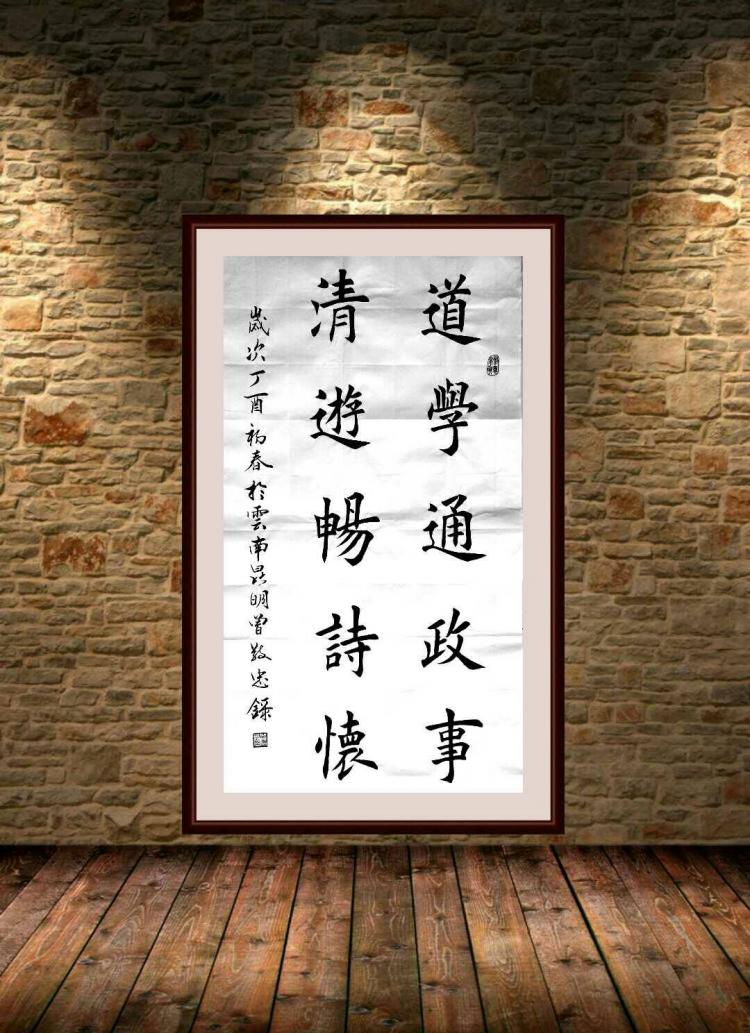 道學通政事
清遊暢詩懷
歲次丁酉初春於雲南昆明曾敬忠錄